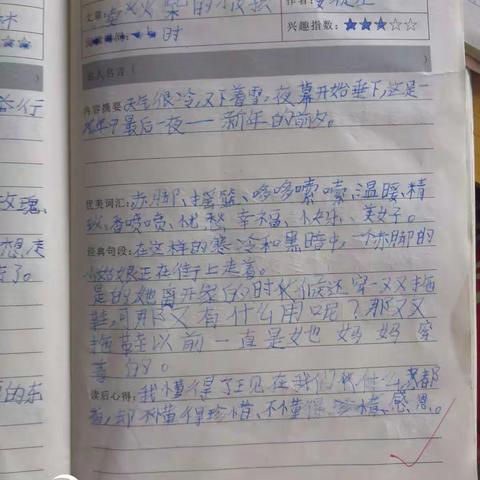 文章:卖火柴的小
时
兴趣指数:★★★☆☆
名人名言(
内容摘要:天气很冷,又下着雪,夜幕开始垂下,这是一
年中最后一夜——新年的前夕。
优美词汇:赤脚、摇篮、哆哆嗦嗦、温暖、精
致、香喷喷、忧愁、幸福、快乐、美好。
经典句段:在这样的寒冷和黑暗中,一个赤脚的
小姑娘正在街上走着。
是的她离开家的时候还穿一双拖
鞋,可那又有什么用呢?那双
拖鞋以前一直是她妈妈穿
着的。
读后心得:我懂得了现在我们什么都
有,却不懂得珍惜、不懂得珍惜、感恩。
玫瑰、
想,走
了。
的东